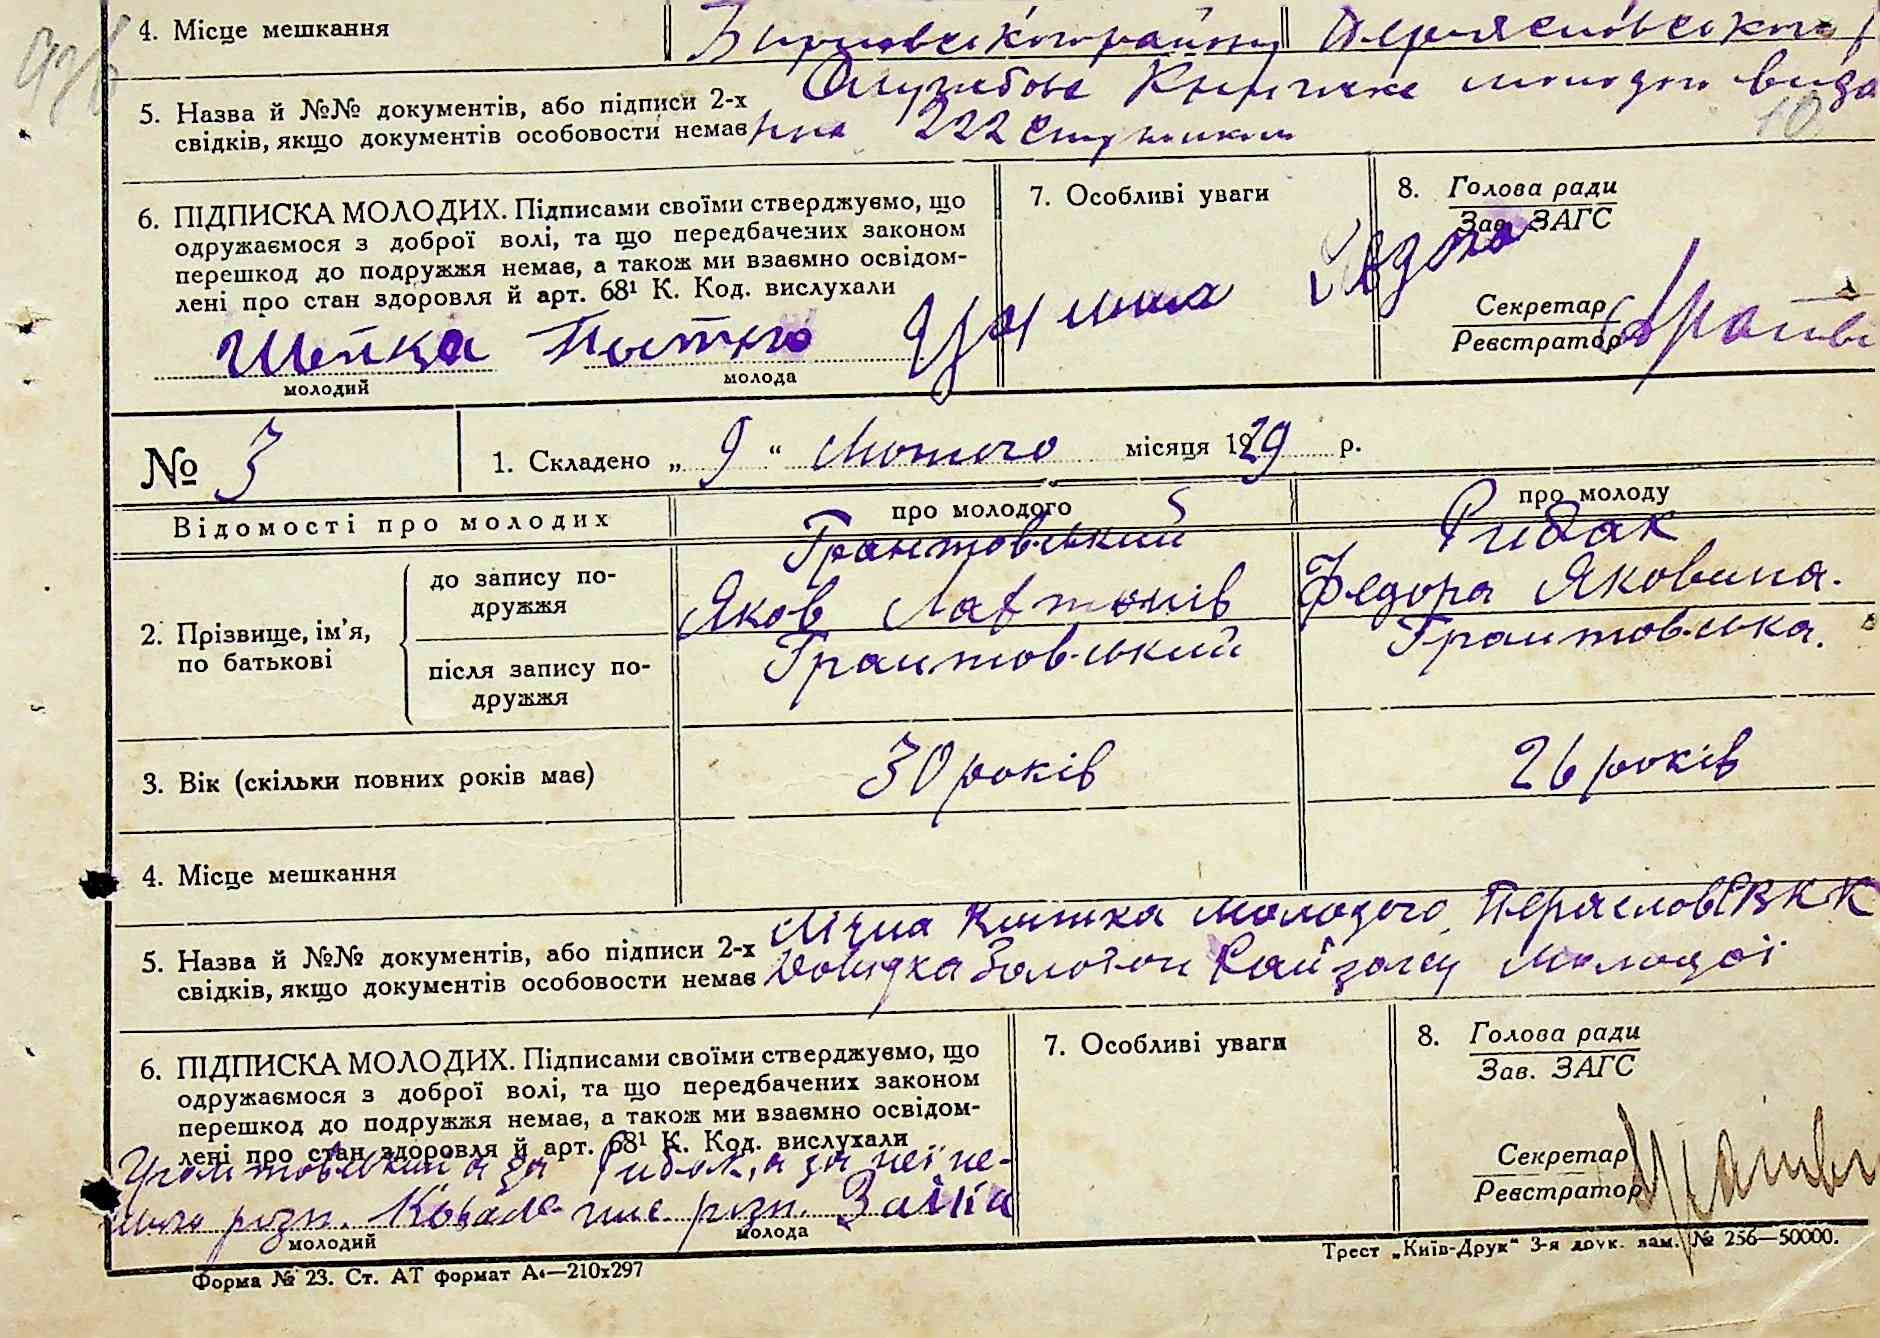 4. Місце мешкання
Переяслівського
5. Назва й №№ документів, або підписи 2-х
свідків, якщо документів особовости немає
Службове Книжка молодого вида
на 222
10
6. ПІДПИСКА МОЛОДИХ. Підписами своїми стверджуємо, що
одружаємося з доброї волі, та що передбачених законом
перешкод до подружжя немає, а також ми взаємно освідом-
лені про стан здоровля й арт. 68¹ К. Код. вислухали
молодий
молода
7. Особливі уваги
8. Голова ради
Зав. ЗАГС
Секретар
Реєстратор
№ 3
1. Складено „ 9 “ Лютого місяця 1929 р.
Відомості про молодих
про молодого
про молоду
2. Прізвище, ім'я,
по батькові
до запису по-
дружжя
Грантовський
Яков Лавтонів
Рибак
Федора Яковина.
після запису по-
дружжя
Грантовський
Грантовська.
3. Вік (скільки повних років має)
30 років
26 років
4. Місце мешкання
5. Назва й №№ документів, або підписи 2-х
свідків, якщо документів особовости немає
Лічна Книжка молодого, Переяслов РВКК
Довідка молодої
6. ПІДПИСКА МОЛОДИХ. Підписами своїми стверджуємо, що
одружаємося з доброї волі, та що передбачених законом
перешкод до подружжя немає, а також ми взаємно освідом-
лені про стан здоровля й арт. 68¹ К. Код. вислухали
Грантовський а за Рибак, а за неї не-
розп. розп. Заїка
молодий
молода
7. Особливі уваги
8. Голова ради
Зав. ЗАГС
Секретар
Реєстратор
Форма № 23. Ст. АТ формат А₄—210х297
Трест „Київ-Друк“ 3-я друк. зам. № 256—50000.